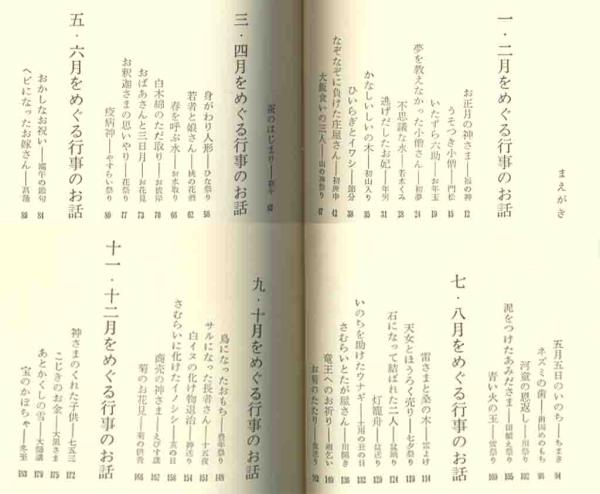 まえがき
一・二月をめぐる行事のお話
お正月の神さま——福の神 12
うそつき小僧——門松 15
いたずら六助——お年玉 19
夢を教えなかった小僧さん——初夢 24
不思議な水——若水くみ 28
逃げだしたお妃——年男 31
かなしいしいの木——初山入り 35
ひいらぎとイワシ——節分 38
なぞなぞに負けた庄屋さん——初庚申 42
大飯食いの三人——山の神祭り 47
三・四月をめぐる行事のお話
身がわり人形——ひな祭り 58
若者と娘さん——桃の花酒 62
春を呼ぶ水——お水取り 66
白木綿のただ取り——お彼岸 70
おばあさんと三日月——お花見 73
お釈迦さまの思いやり——花祭り 77
疫病神——やすらい祭り 80
五・六月をめぐる行事のお話
おかしなお祝い——端午の節句 84
ヘビになったお嫁さん——菖蒲
五月五日のいのち——ちまき
ネズミの歯——歯固めのもち
河童の恩返し——川祭り
泥をつけたあみださま——田植え祭り
青い火の玉——雷祭り
七・八月をめぐる行事のお話
雷さまと桑の木——雷よけ
天女とほうろく売り——七夕祭り
石になって結ばれた二人——盆踊り
灯籠舟——盆送り
いのちを助けたウナギ——土用の丑の日
さむらいとたが屋さん——川開き
竜王へのお祈り——雨乞い
お菊のたたり——虫送り
九・十月をめぐる行事のお話
鳥になったおもち——豊年祭り
サルになった長者さん——十五夜
白イヌの化け物退治——神送り
さむらいに化けたイノシシ——亥の日
商売の神さま——えびす講
菊のお花見——菊の供養
十一・十二月をめぐる行事のお話
神さまのくれた子供——七五三
こじきのお金——大黒さま
あとかくしの雪——大師講
宝のかぼちゃ——冬至